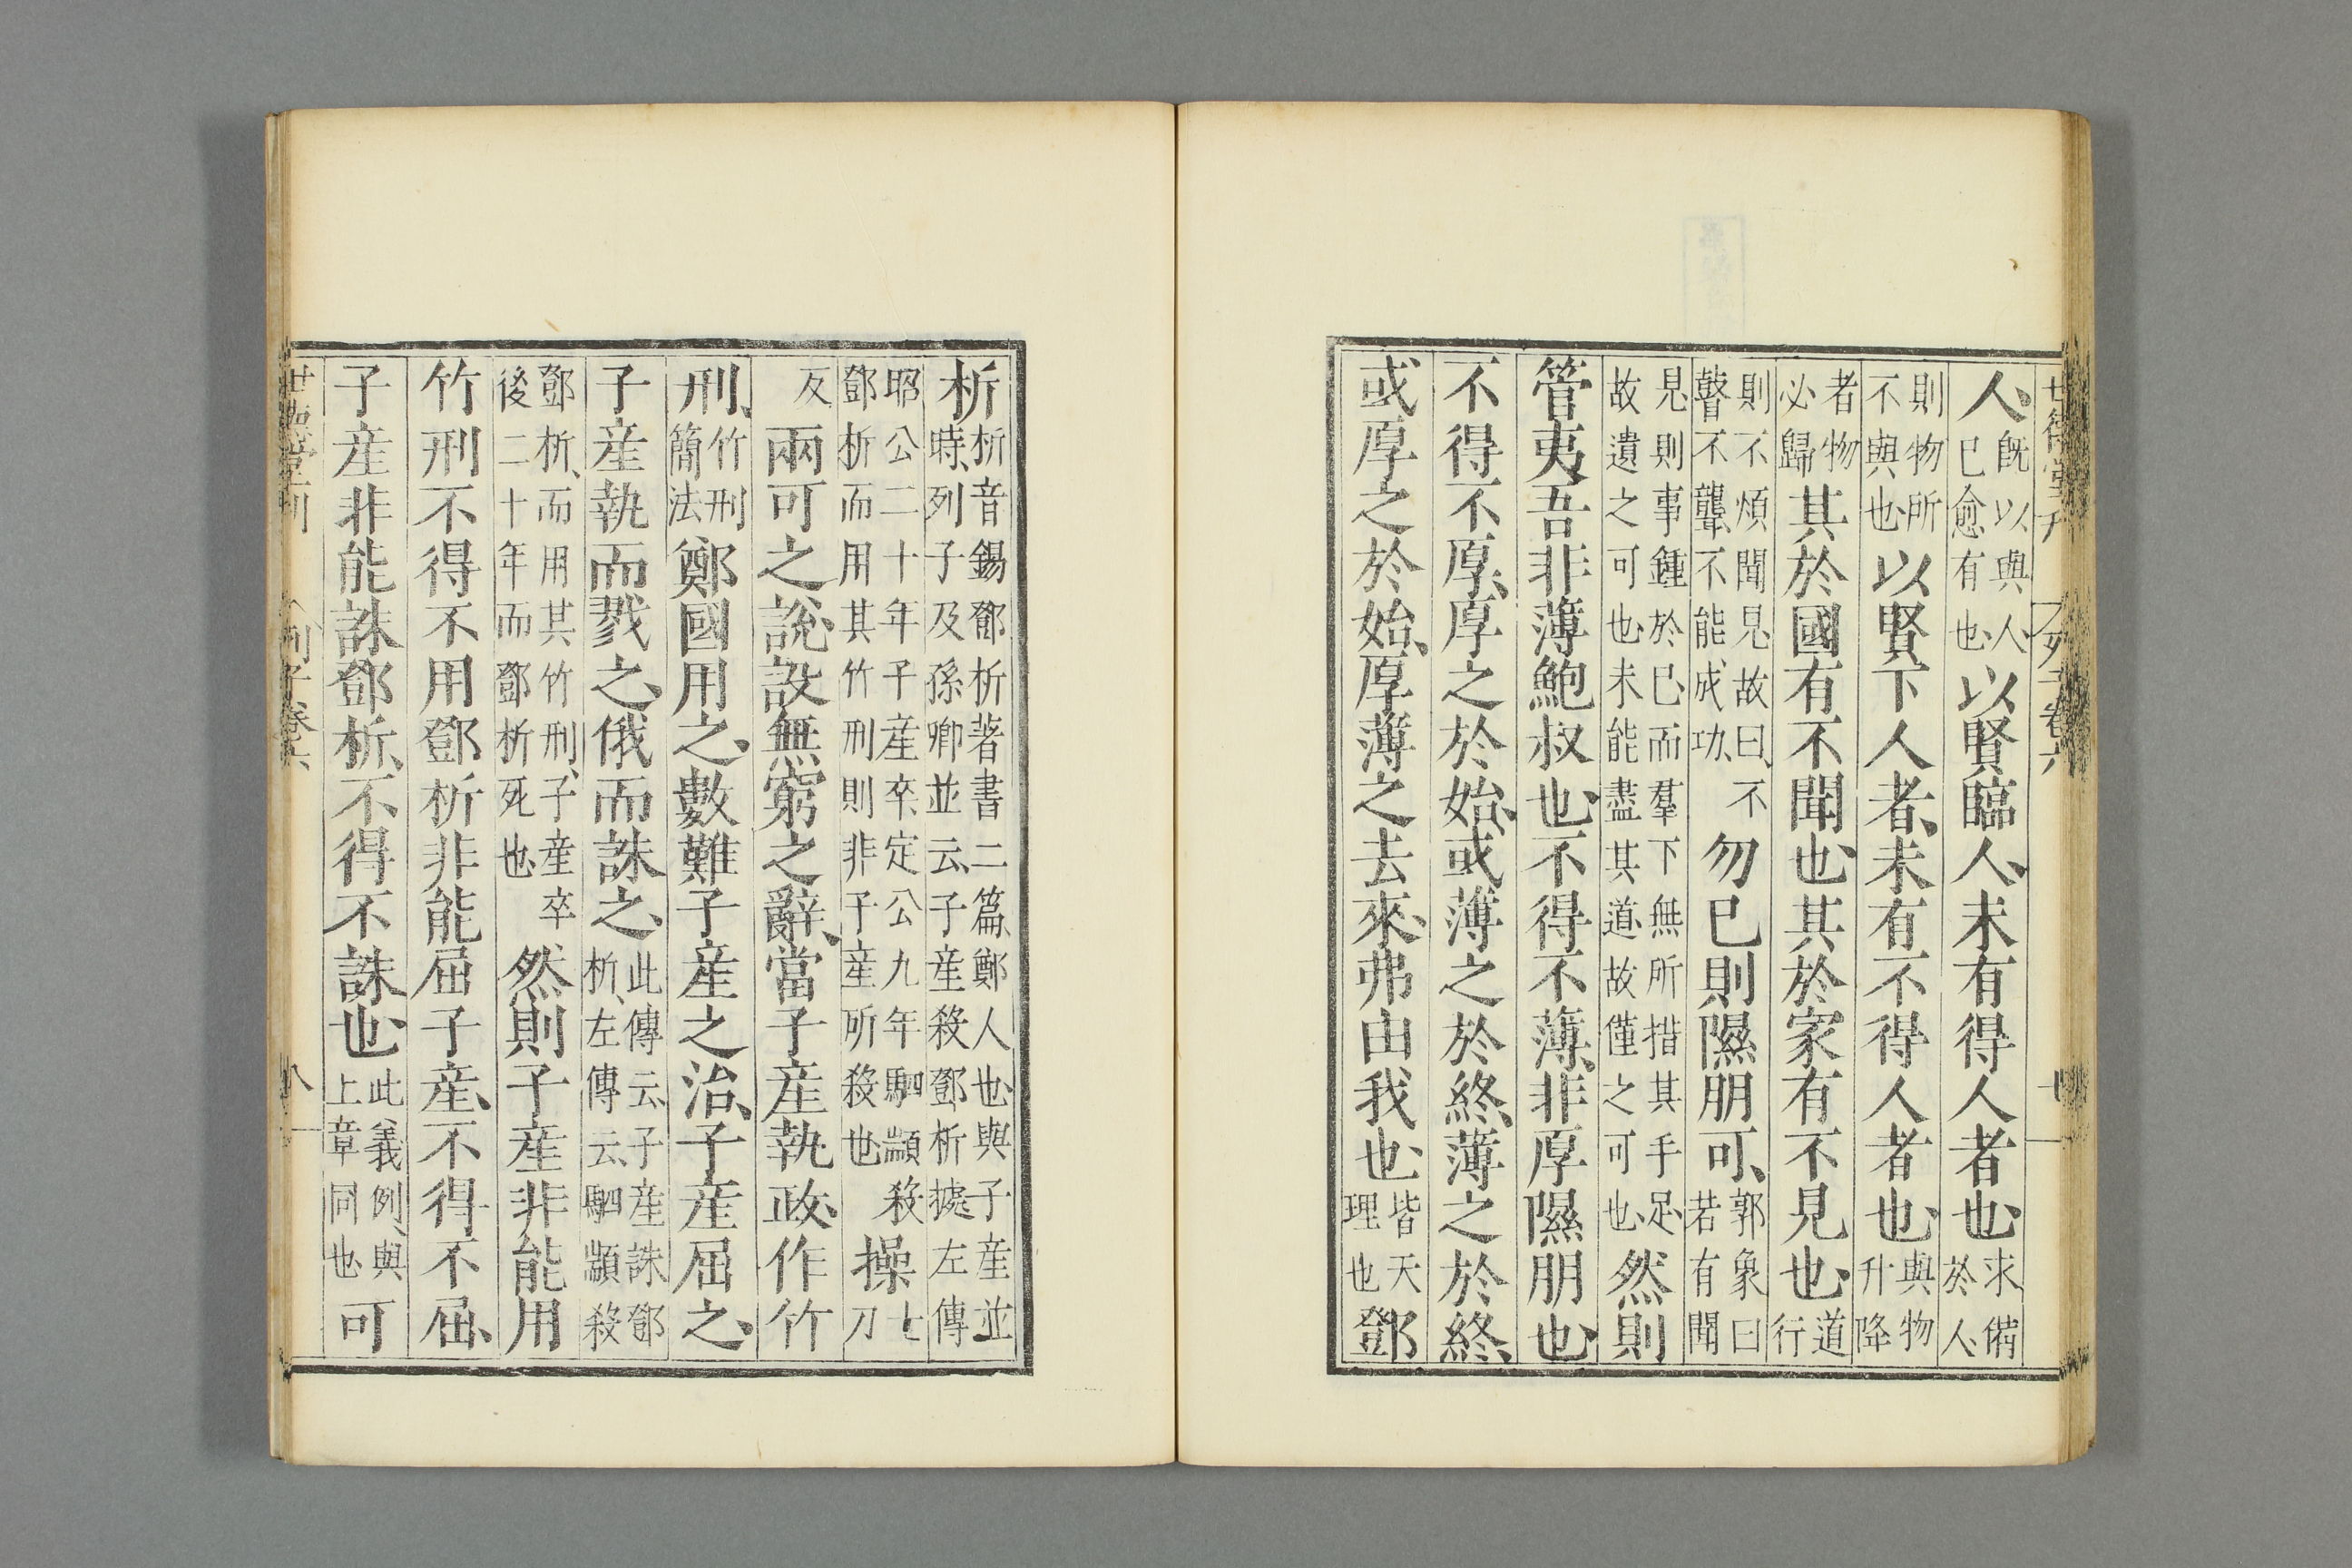 人、既以與人、已愈有也、以賢臨人、未有得人者也、求備於人、
則物所不與也、以賢下人者、未有不得人者也、與物升降
者物必歸其於國有不聞也、其於家有不見也、道行
則不煩聞見、故曰、不瞽不聾、不能成功、勿已則隰朋可、郭象曰若有聞
見則事鍾於已而羣下無所措其手足故遺之可也、未能盡其道、故僅之可也、然則
管夷吾非薄鮑叔也、不得不薄、非厚隰朋也、
不得不厚、厚之於始、或薄之於終、薄之於終、
或厚之於始、厚薄之去來、弗由我也、皆天理也鄧
世德堂刊 列子卷六 七
析析音錫鄧析著書二篇、鄭人也、與子產並時、列子及孫卿並云、子產殺鄧析據左傳
昭公二十年子產卒、定公九年駟顓殺鄧析而用其竹刑則非子產所殺也操七刀
反兩可之說、設無窮之辭、當子產執政、作竹
刑、竹刑簡法鄭國用之、數難子產之治、子產屈之、
子產執而戮之、俄而誅之、此傳云、子產誅鄧析、左傳云、駟顓殺
鄧析、而用其竹刑、子產卒後二十年而鄧析死也、然則子產非能用
竹刑不得不用鄧析非能屈子產、不得不屈、
子產非能誅鄧析、不得不誅也、此義例、與上章同也、可
世德堂刊 列子卷六 八